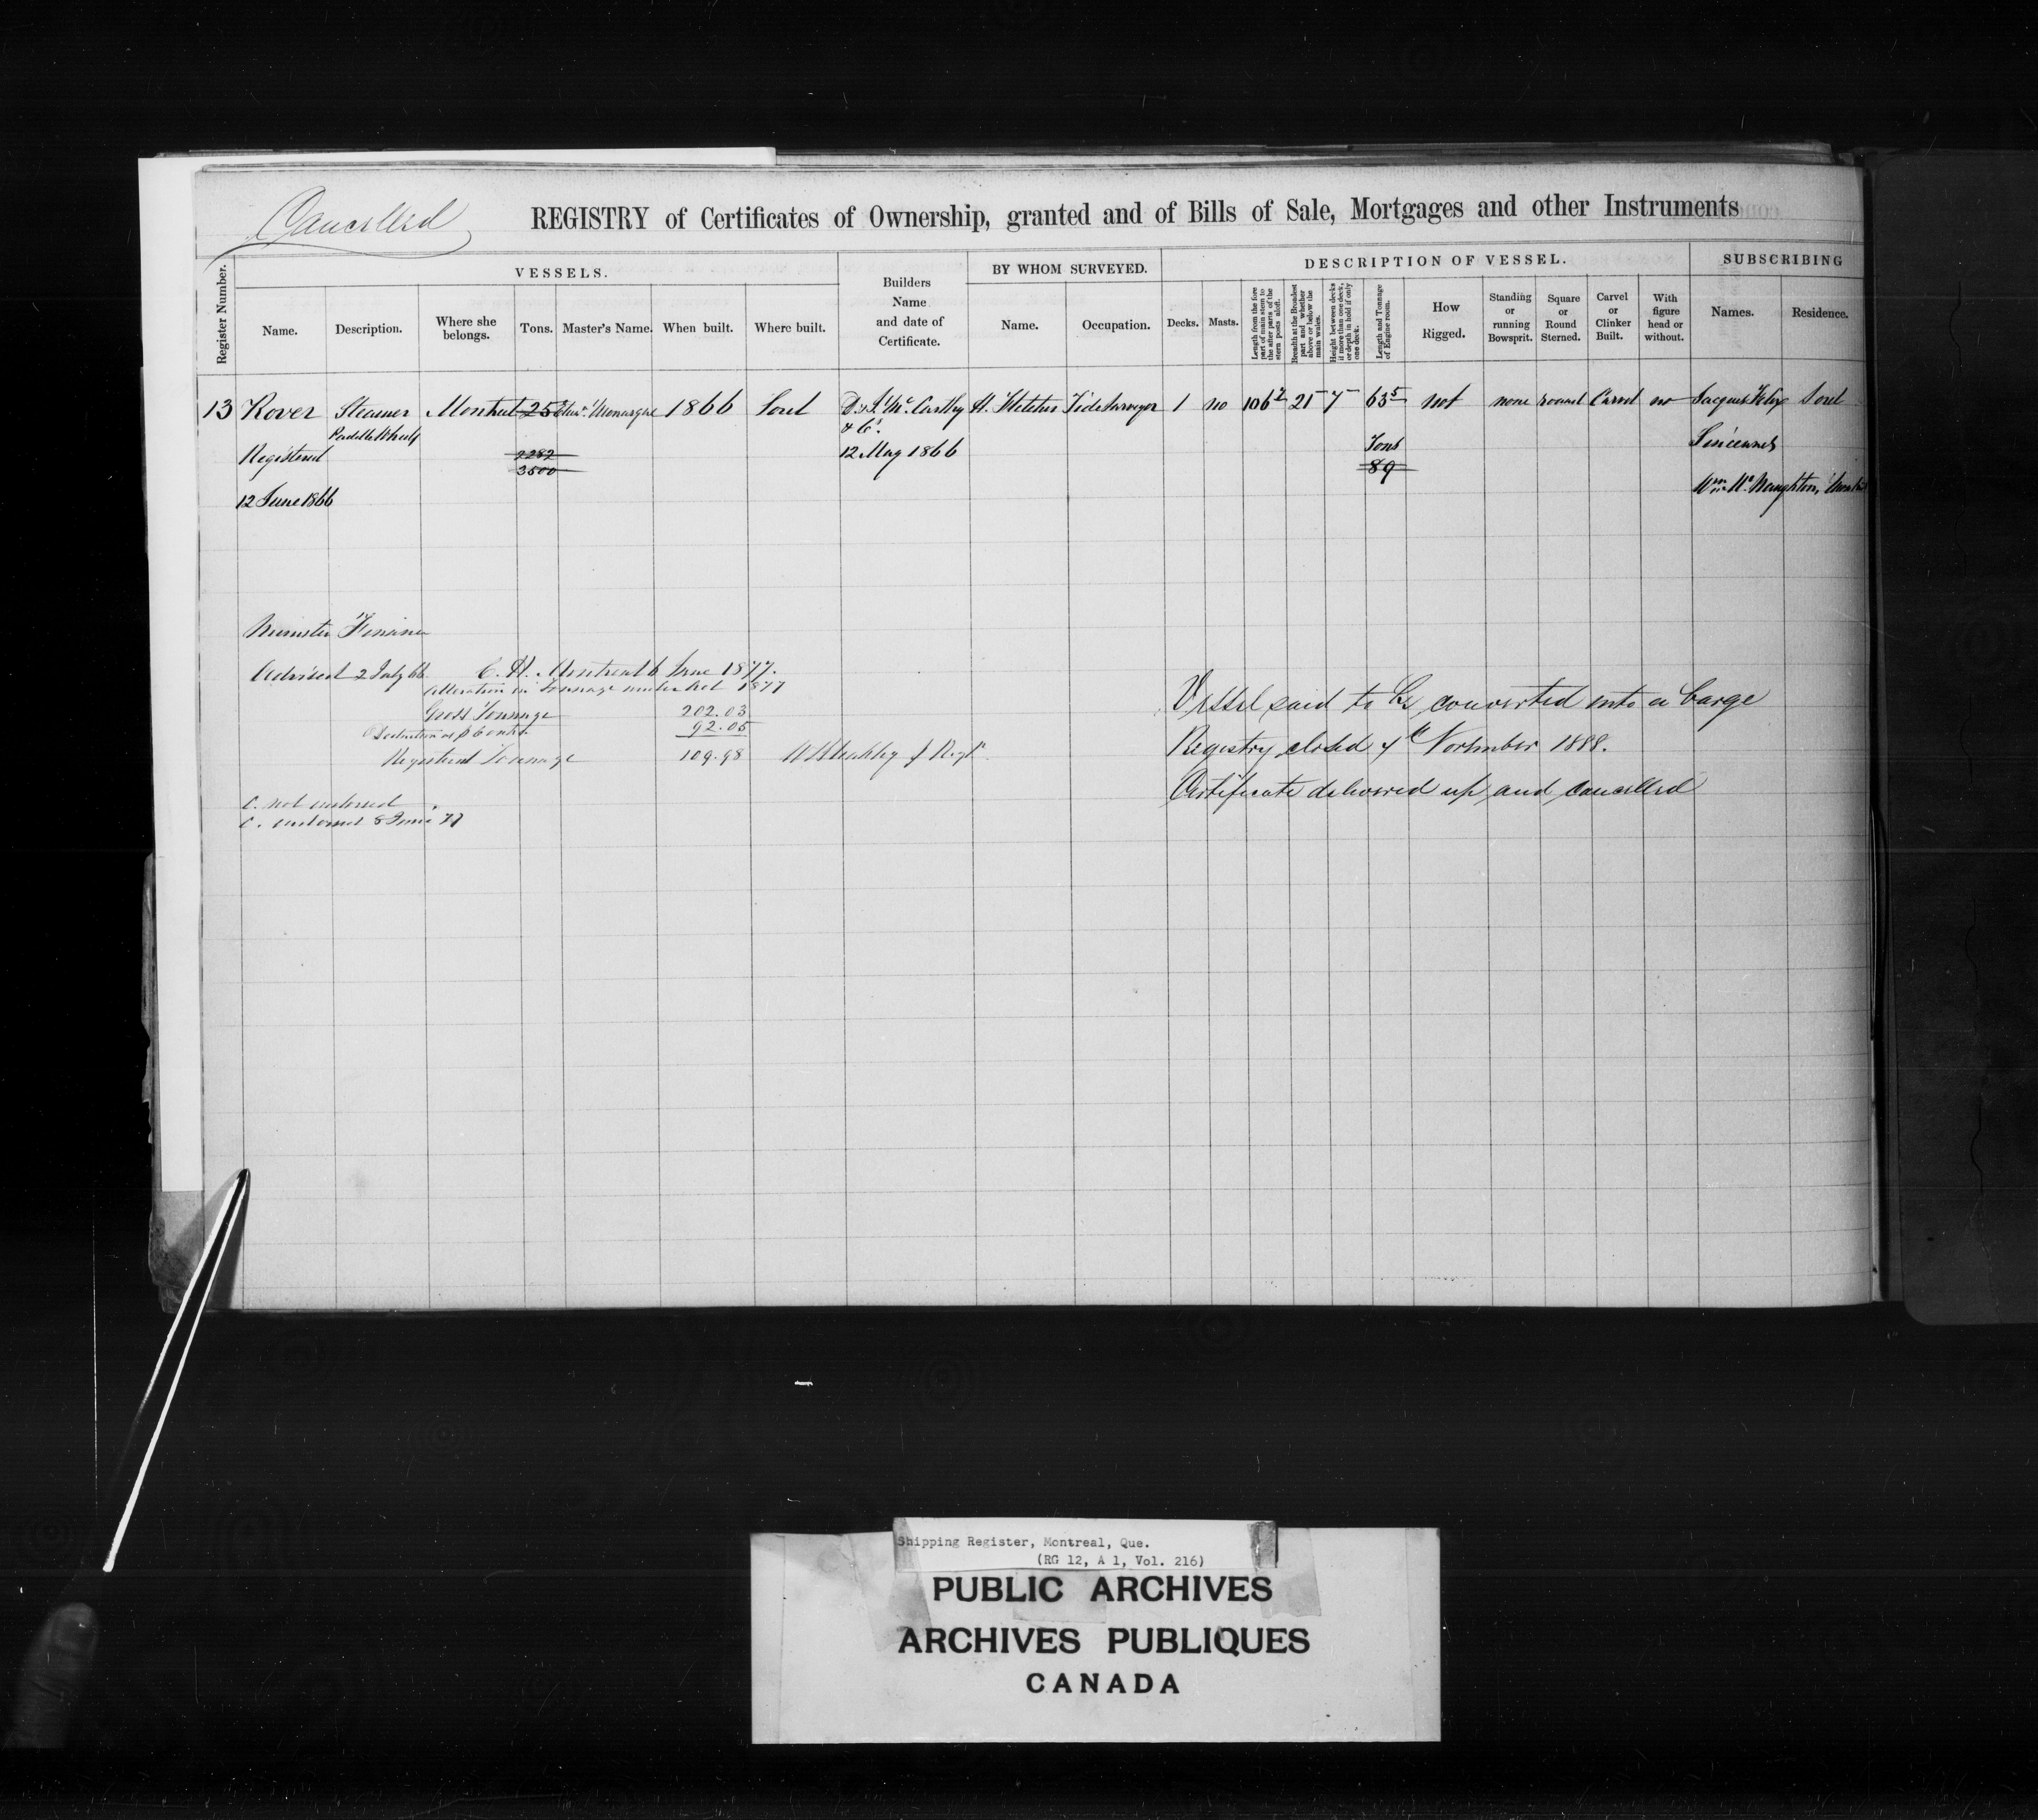 Cancelled
REGISTRY of Certificates of Ownership, granted and of Bills of Sale, Mortgages and other Instruments
Register Number.
VESSELS.
Name.
Description.
Where she belongs.
Tons.
Master's Name.
When built.
Where built.
Builders Name and date of Certificate.
BY WHOM SURVEYED.
Name.
Occupation.
DESCRIPTION OF VESSEL.
Decks.
Masts.
Length from the fore part of main stem to the after parts of the stern posts aloft.
Breadth at the Broadest part and whether above or below the main wales.
Height between decks if more than one deck, or depth in hold if only one deck.
Length and Tonnage of Engine room.
How Rigged.
Standing or running Bowsprit.
Square or Round Sterned.
Carvel or Clinker Built.
With figure head or without.
SUBSCRIBING
Names.
Residence.
13 Rover Steamer Montreal 25 Monarque 1866 Sorel D & J Mc Carthy H. Fletcher Tide Surveyor 1 no 106 2 21 7 63 5 not none round Carvel no Jacques Felix Sorel
Paddle Wheels
& Co.
Registered
2282
3500
12 May 1866
Tons
89
Sincennes
12 June 1866
Wm Mc Naughton, Montreal
Minister Finance
Advised 2 July 66
C. H. Montreal 6 June 1877.
Alteration in Tonnage under Act 1877
Gross Tonnage 202.03
Deduction as 92.05
Registered Tonnage 109.98
C. not endorsed
C. endorsed 8 June 77
Vessel said to be converted into a barge
Registry closed 7th November 1888.
Certificate delivered up and cancelled
Shipping Register, Montreal, Que.
(RG 12, A 1, Vol. 216)
PUBLIC ARCHIVES
ARCHIVES PUBLIQUES
CANADA